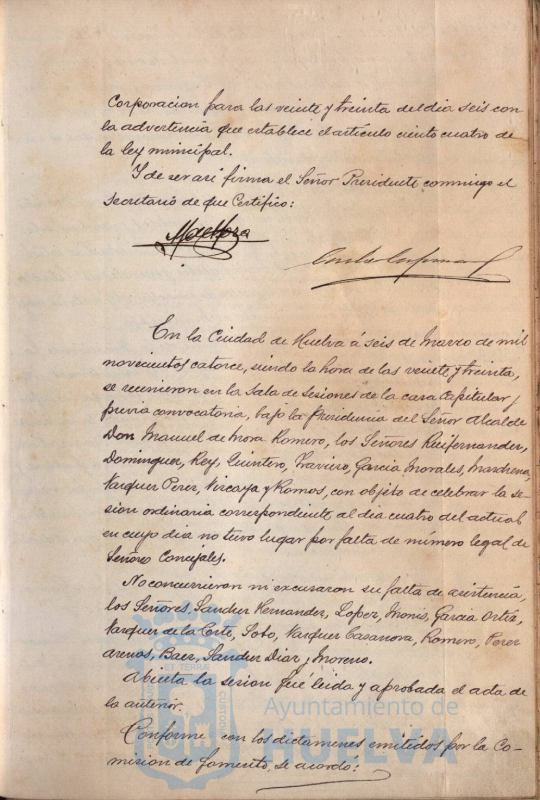 Corporacion para las veinte y treinta del dia seis con
la advertencia que establece el artículo ciento cuatro de
la ley municipal.
Y de ser así firma el Señor Presidente conmigo el
Secretario de que Certifico:
M de Mora
En la Ciudad de Huelva á seis de Marzo de mil
novecientos catorce, siendo la hora de las veinte y treinta,
se reunieron en la Sala de Sesiones de la casa Capitular,
previa convocatoria, bajo la Presidencia del Señor Alcalde
Don Manuel de Mora Romero, los Señores Ruifernandez,
Dominguez, Rey, Quintero, Traviero, Garcia Morales, Marchena,
Vazquez Perez, Vizcaya y Ramos, con objeto de celebrar la se-
sion ordinaria correspondiente al dia cuatro del actual
en cuyo dia no tuvo lugar por falta de número legal de
Señores Concejales.
No concurrieron ni excusaron su falta de asistencia,
los Señores, Sanchez Hernandez, Lopez, Monis, Garcia Ortiz,
Vazquez de la Corte, Soto, Vazquez Casanova, Romero, Perez
Arenas, Baez, Sanchez Diaz y Moreno.
Abierta la sesion fué leida y aprobada el acta de
la anterior.
Ayuntamiento de
HUELVA
Conforme con los dictámenes emitidos por la Co-
mision de fomento, se acordó: